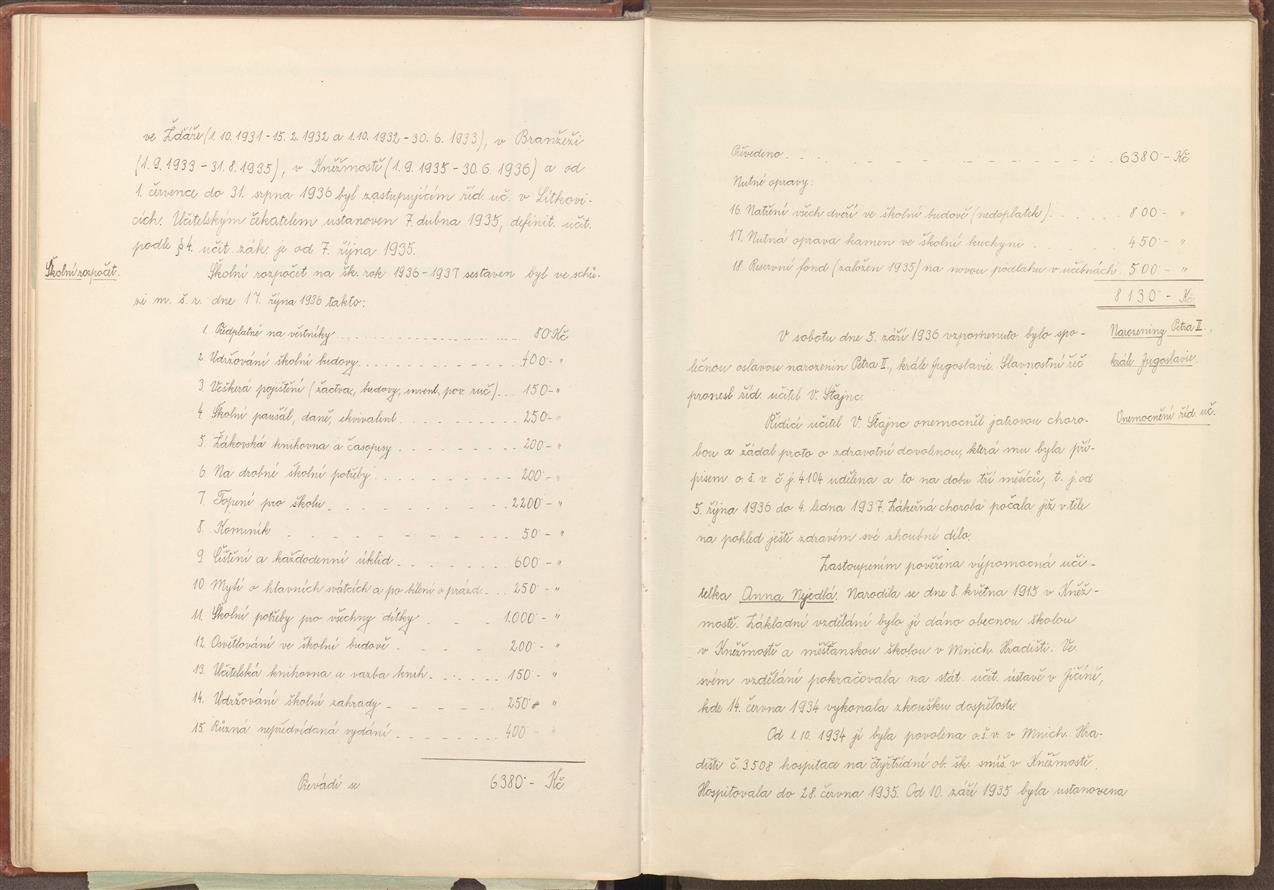 ve Žďáře (1.10.1931-15.2.1932 a 1.10.1932-30.6.1933), v Branžeži
(1.9.1933-31.8.1935), v Kněžmostě (1.9.1935-30.6.1936) a od
1. července do 31. srpna 1936 byl zastupujícím říd. uč. v Lítkovi-
cích. Učitelským čekatelem ustanoven 7. dubna 1935, definit. učit.
podle § 4. učit. zák. je od 7. října 1935.
Školní rozpočet.
Školní rozpočet na šk. rok 1936-1937 sestaven byl ve schů-
zi m. š. r. dne 17. října 1936 takto:
1. Předplatné na věstníky 80 Kč
2. Udržování školní budovy 400- "
3. Veškerá pojištění (žactva, budovy, invent., pov. ruč.) 150- "
4. Školní paušál, daně, ekvivalent 250- "
5. Žákovská knihovna a časopisy 200- "
6. Na drobné školní potřeby 200- "
7. Topení pro školu 2200- "
8. Kominík 50- "
9. Čištění a každodenní úklid 600- "
10. Mytí o hlavních svátcích a po bílení o prázd. 250- "
11. Školní potřeby pro všechny dítky 1.000- "
12. Osvětlování ve školní budově 200- "
13. Učitelská knihovna a vazba knih 150- "
14. Udržování školní zahrady 250- "
15. Různá nepředvídaná vydání 400- "
Převádí se 6380- Kč
Převedeno 6380- Kč
Nutné opravy:
16. Natření všech dveří ve školní budově (nedoplatek) 800- "
17. Nutná oprava kamen ve školní kuchyni 450- "
18. Reservní fond (založen 1935) na novou podlahu v učebnách 500- "
8130- Kč
V sobotu dne 5. září 1936 vzpomenuto bylo spo-
lečnou oslavou narozenin Petra II., krále Jugoslavie. Slavnostní řeč
pronesl říd. učitel V. Štajnc.
Narozeniny Petra II.,
krále Jugoslavie.
Řídící učitel V. Štajnc onemocněl jatrovou choro-
bou a žádal proto o zdravotní dovolenou, která mu byla pří-
pisem o. š. v. č. j. 4104 udělena a to na dobu tří měsíců, t. j. od
5. října 1936 do 4. ledna 1937. Zákeřná choroba počala již v těle
na pohled ještě zdravém své zhoubné dílo.
Onemocnění říd. uč.
Zastoupením pověřena výpomocná uči-
telka Anna Nejedlá. Narodila se dne 8. května 1915 v Kněž-
mostě. Základní vzdělání bylo jí dáno obecnou školou
v Kněžmostě a měšťanskou školou v Mnich. Hradišti. Ve
svém vzdělání pokračovala na stát. učit. ústavě v Jičíně,
kde 14. června 1934 vykonala zkoušku dospělosti.
Od 1.10. 1934 jí byla povolena o. š. v. v Mnich. Hra-
dišti č. 3508 hospitace na čtyřtřídní ob. šk. smíš. v Kněžmostě.
Hospitovala do 28. června 1935. Od 10. září 1935 byla ustanovena